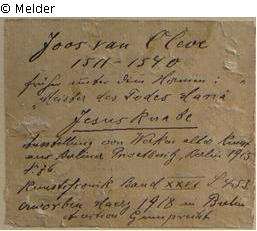 © Melder
Joos van Cleve
1511-1540
früher unter dem Namen:
"Meister des Todes Mariä"
Jesusknabe
Ausstellung von Werken alter Kunst
aus Berliner Privatbesitz, Berlin 1915
Kunstchronik Band XXXI S 453
erworben März 1918 in Berlin
Auktion